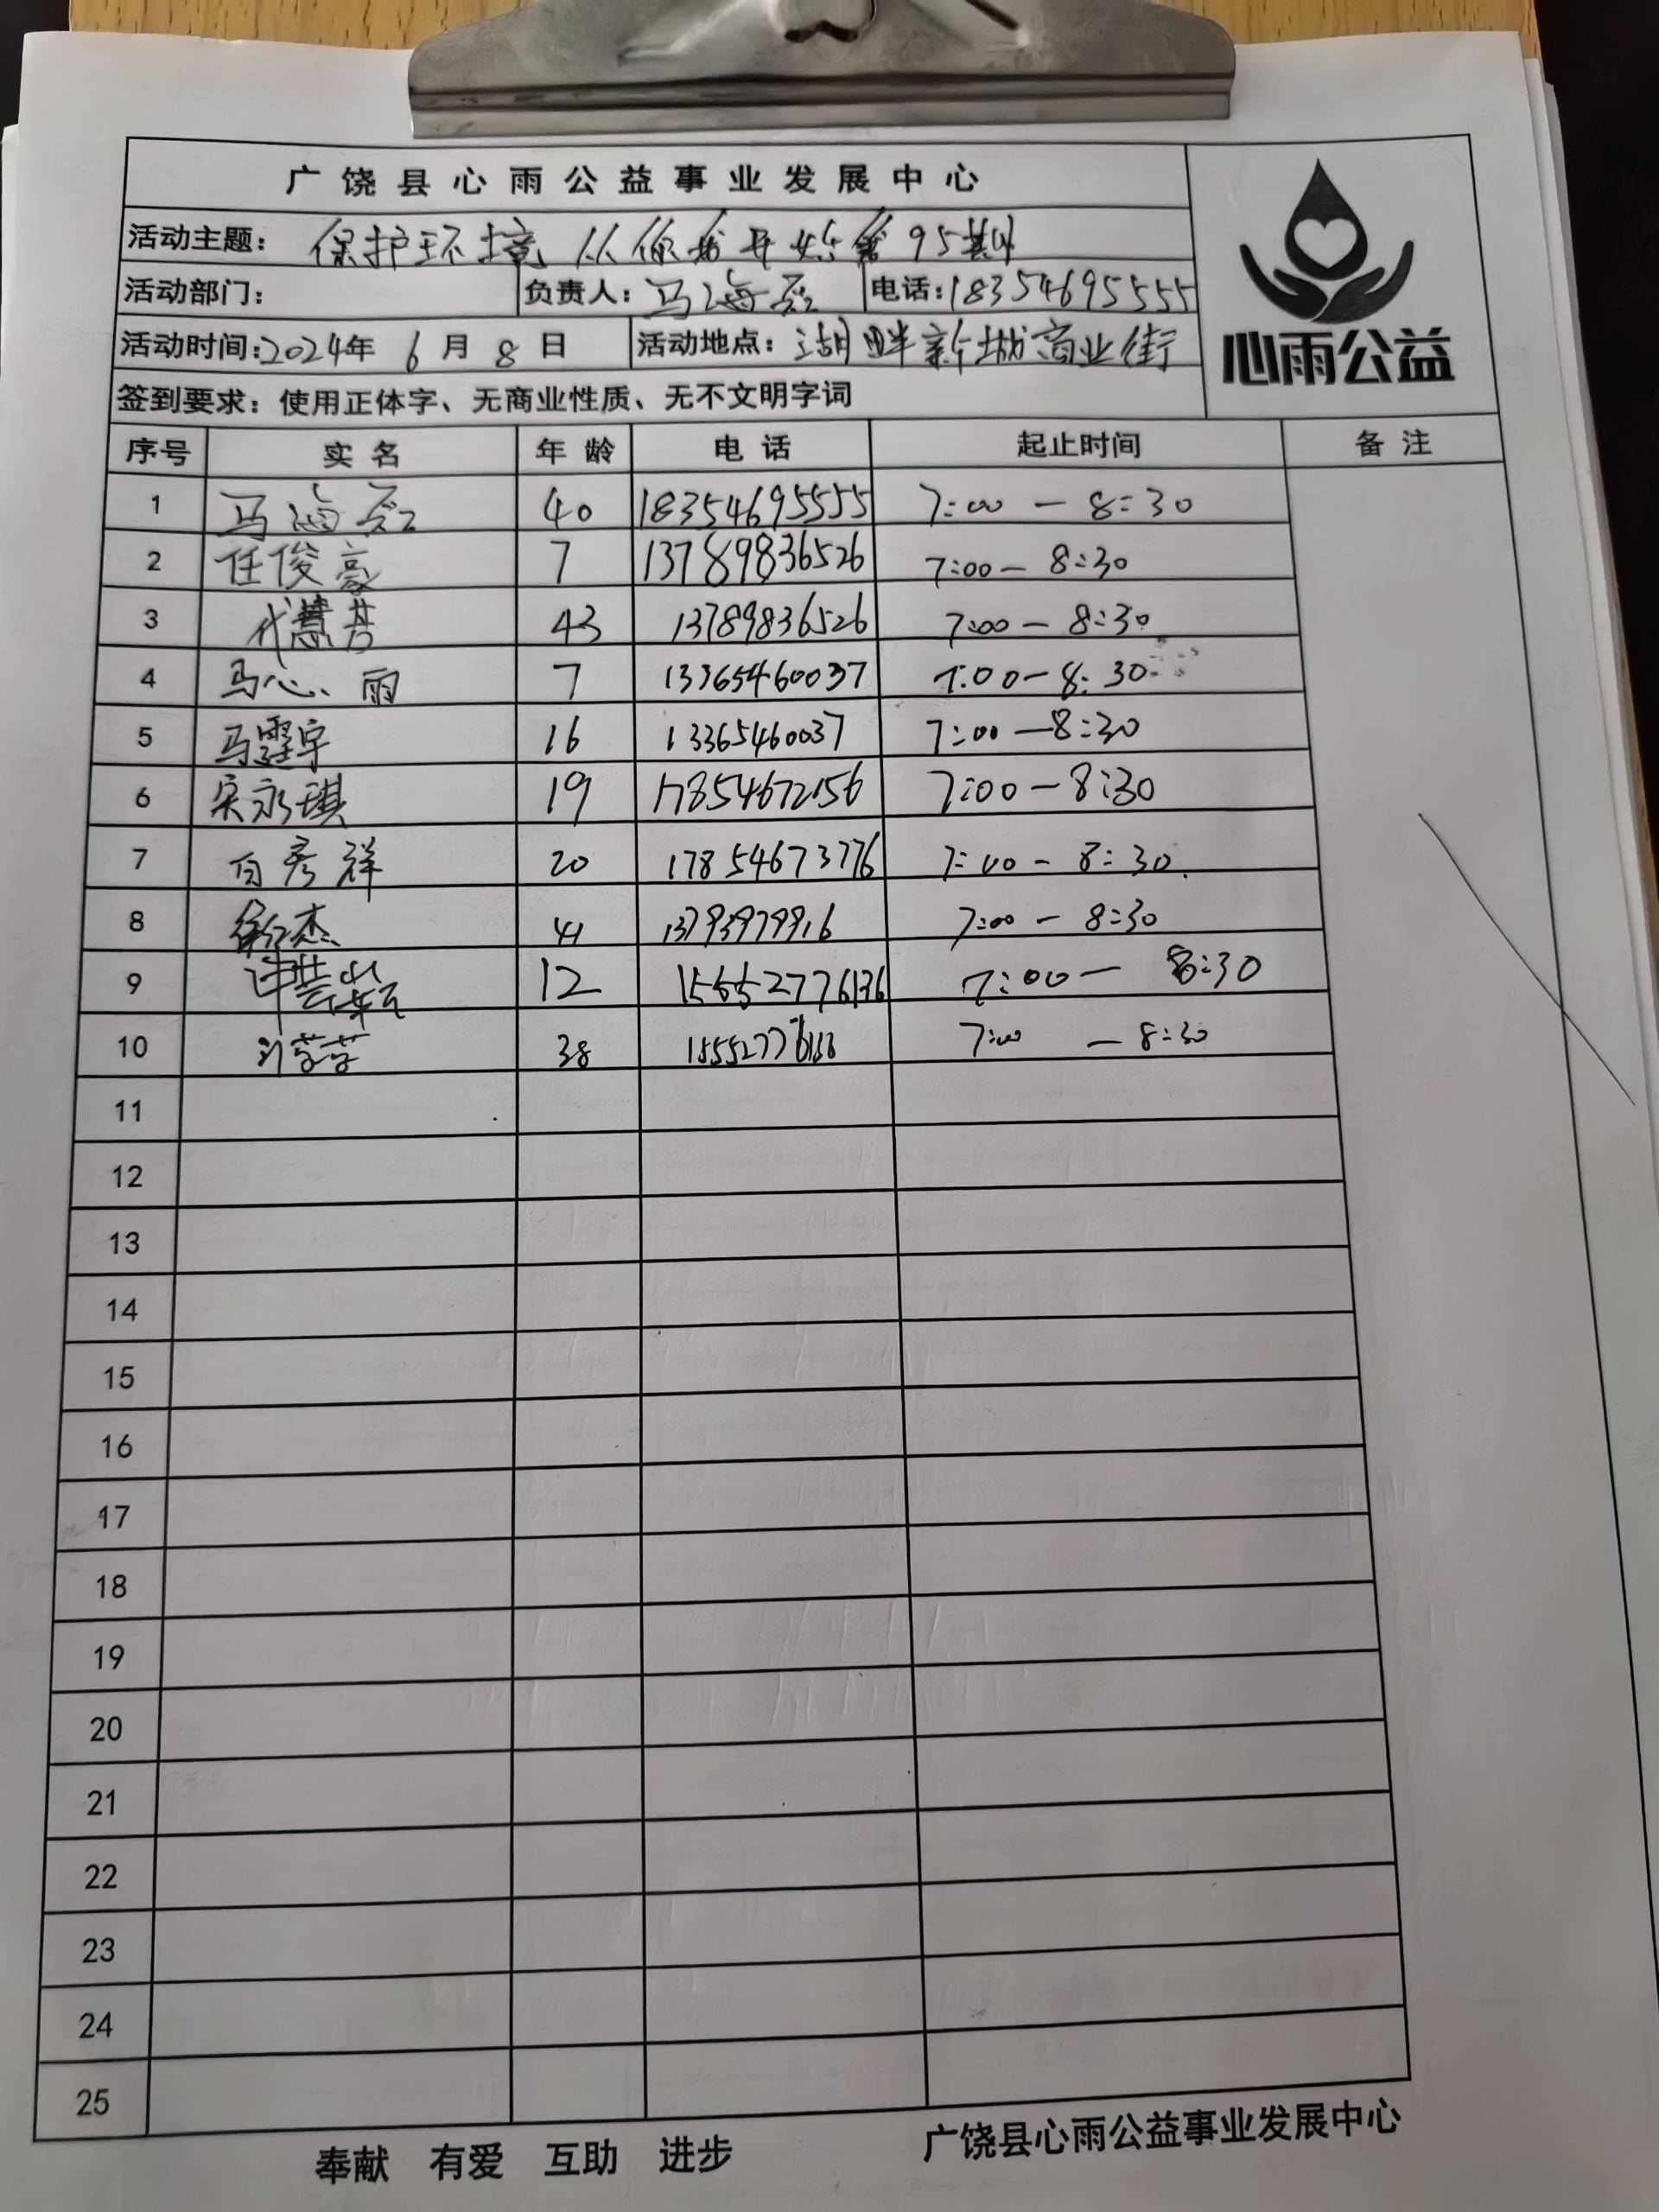 广饶县心雨公益事业发展中心
活动主题：保护环境 从你我开始第95期
活动部门： 负责人：马海 电话：18354695555
活动时间：2024年 6月 8日 活动地点：湖畔新城商业街
心雨公益
签到要求：使用正体字、无商业性质、无不文明字词
序号 实名 年龄 电话 起止时间 备注
1 马海 40 18354695555 7:00—8:30
2 任俊豪 7 13789836526 7:00—8:30
3 代慧芳 43 13789836526 7:00—8:30
4 马心雨 7 13365460037 7:00—8:30
5 马霆宇 16 13365460037 7:00—8:30
6 宋永琪 19 17854672156 7:00—8:30
7 白彦祥 20 17854673776 7:00—8:30
8 杰 41 13793979916 7:00—8:30
9 12 15552776136 7:00—8:30
10 38 7:00—8:30
11
12
13
14
15
16
17
18
19
20
21
22
23
24
25
奉献 有爱 互助 进步 广饶县心雨公益事业发展中心